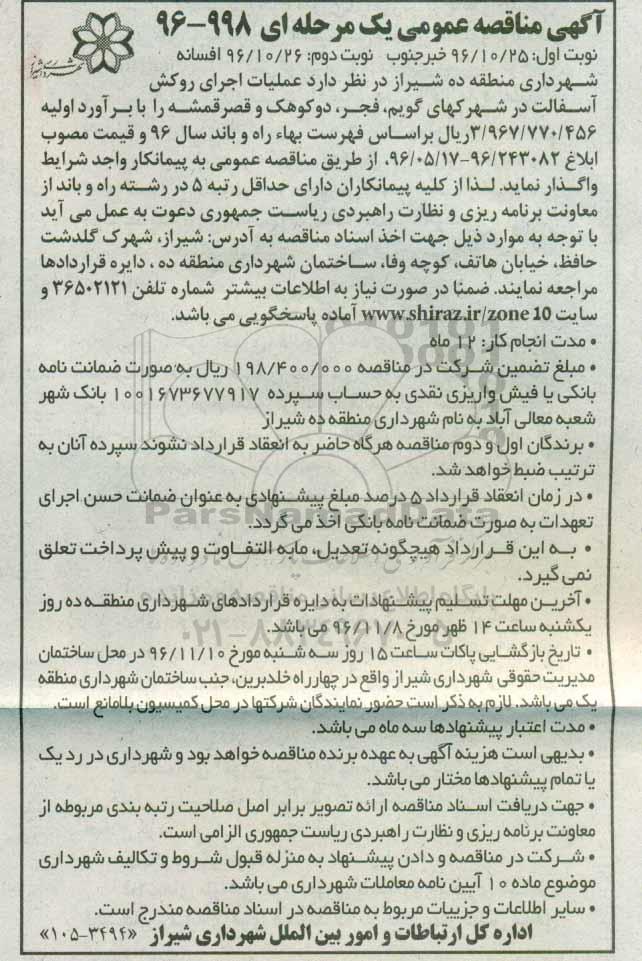 آگهی مناقصه عمومی یک مرحله ای ۹۹۸-۹۶
نوبت اول: ۹۶/۱۰/۲۵ خبرجنوب نوبت دوم: ۹۶/۱۰/۲۶ افسانه
شهرداری شیراز
شهرداری منطقه ده شیراز در نظر دارد عملیات اجرای روکش
آسفالت در شهرکهای گویم، فجر، دوکوهک و قصرقمشه را با برآورد اولیه
۳/۹۶۷/۷۷۰/۴۵۶ریال براساس فهرست بهاء راه و باند سال ۹۶ و قیمت مصوب
ابلاغ ۹۶/۲۴۳۰۸۲-۹۶/۰۵/۱۷، از طریق مناقصه عمومی به پیمانکار واجد شرایط
واگذار نماید. لذا از کلیه پیمانکاران دارای حداقل رتبه ۵ در رشته راه و باند از
معاونت برنامه ریزی و نظارت راهبردی ریاست جمهوری دعوت به عمل می آید
با توجه به موارد ذیل جهت اخذ اسناد مناقصه به آدرس: شیراز، شهرک گلدشت
حافظ، خیابان هاتف، کوچه وفا، ساختمان شهرداری منطقه ده ، دایره قراردادها
مراجعه نمایند. ضمنا در صورت نیاز به اطلاعات بیشتر شماره تلفن ۳۶۵۰۲۱۲۱ و
سایت www.shiraz.ir/zone 10 آماده پاسخگویی می باشد.
• مدت انجام کار: ۱۲ ماه
• مبلغ تضمین شرکت در مناقصه ۱۹۸/۴۰۰/۰۰۰ ریال به صورت ضمانت نامه
بانکی یا فیش واریزی نقدی به حساب سپرده ۱۰۰۱۶۷۳۶۷۷۹۱۷ بانک شهر
شعبه معالی آباد به نام شهرداری منطقه ده شیراز
• برندگان اول و دوم مناقصه هرگاه حاضر به انعقاد قرارداد نشوند سپرده آنان به
ترتیب ضبط خواهد شد.
• در زمان انعقاد قرارداد ۵ درصد مبلغ پیشنهادی به عنوان ضمانت حسن اجرای
تعهدات به صورت ضمانت نامه بانکی اخذ می گردد.
ParsNamadData
• به این قرارداد هیچگونه تعدیل، مابه التفاوت و پیش پرداخت تعلق
نمی گیرد.
• آخرین مهلت تسلیم پیشنهادات به دایره قراردادهای شهرداری منطقه ده روز
یکشنبه ساعت ۱۴ ظهر مورخ ۹۶/۱۱/۸ می باشد.
• تاریخ بازگشایی پاکات ساعت ۱۵ روز سه شنبه مورخ ۹۶/۱۱/۱۰ در محل ساختمان
مدیریت حقوقی شهرداری شیراز واقع در چهارراه خلدبرین، جنب ساختمان شهرداری منطقه
یک می باشد. لازم به ذکر است حضور نمایندگان شرکتها در محل کمیسیون بلامانع است.
• مدت اعتبار پیشنهادها سه ماه می باشد.
• بدیهی است هزینه آگهی به عهده برنده مناقصه خواهد بود و شهرداری در رد یک
یا تمام پیشنهادها مختار می باشد.
• جهت دریافت اسناد مناقصه ارائه تصویر برابر اصل صلاحیت رتبه بندی مربوطه از
معاونت برنامه ریزی و نظارت راهبردی ریاست جمهوری الزامی است.
• شرکت در مناقصه و دادن پیشنهاد به منزله قبول شروط و تکالیف شهرداری
موضوع ماده ۱۰ آیین نامه معاملات شهرداری می باشد.
• سایر اطلاعات و جزییات مربوط به مناقصه در اسناد مناقصه مندرج است.
اداره کل ارتباطات و امور بین الملل شهرداری شیراز «۳۴۹۴-۱۰۵»